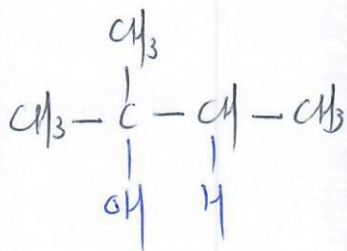 CH3
CH3 - C - CH - CH3
OH H